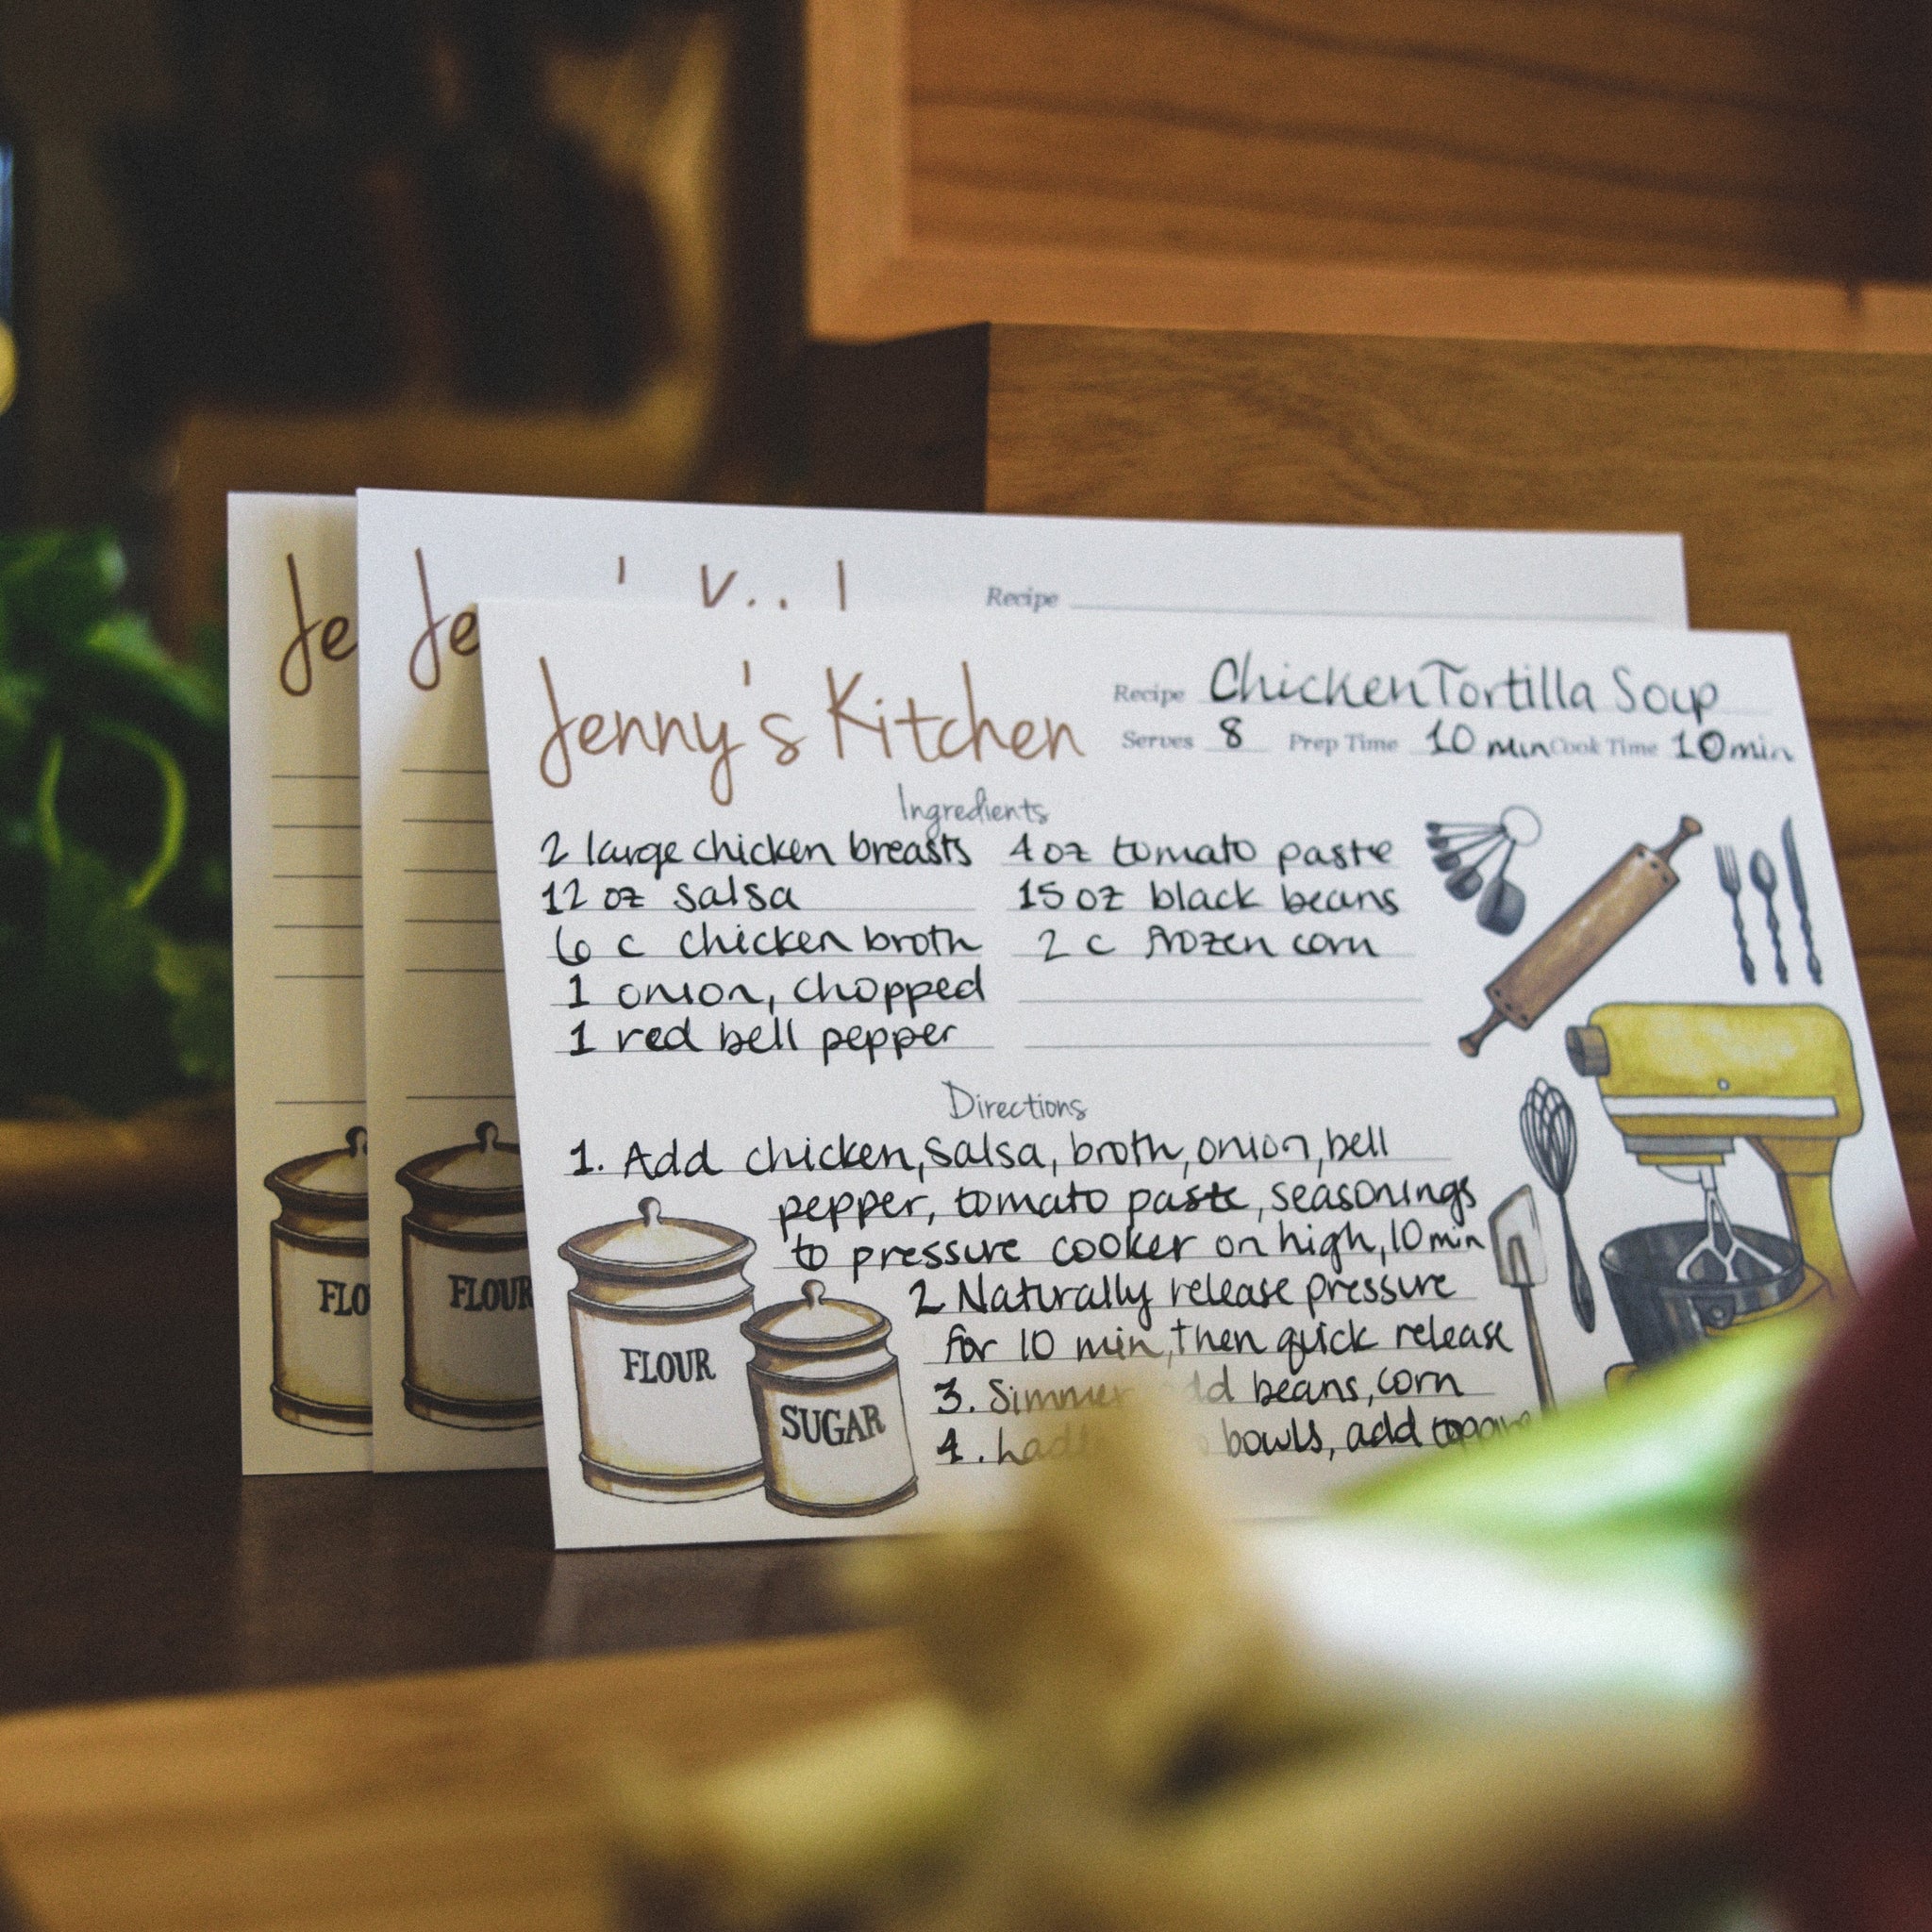 Je
Je
Recipe
Jenny's Kitchen
Recipe Chicken Tortilla Soup
Serves 8 Prep Time 10 min Cook Time 10 min
Ingredients
2 large chicken breasts 4 oz tomato paste
12 oz salsa 15 oz black beans
6 c chicken broth 2 c frozen corn
1 onion, chopped
1 red bell pepper
Directions
1. Add chicken, salsa, broth, onion, bell
pepper, tomato paste, seasonings
to pressure cooker on high, 10 min
2 Naturally release pressure
for 10 min, then quick release
3. Simmer, add beans, corn
4. bowls, add
FLOUR
SUGAR
FLO
FLOUR